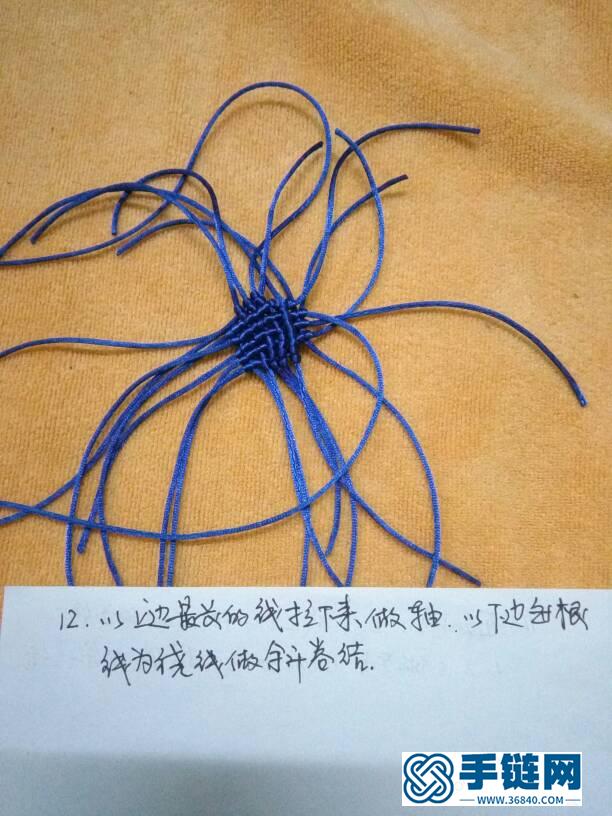 12. 以边最长的线拉下来做轴. 以下边每根
线为绕线做斜卷结.
手链网
WWW.36840.COM